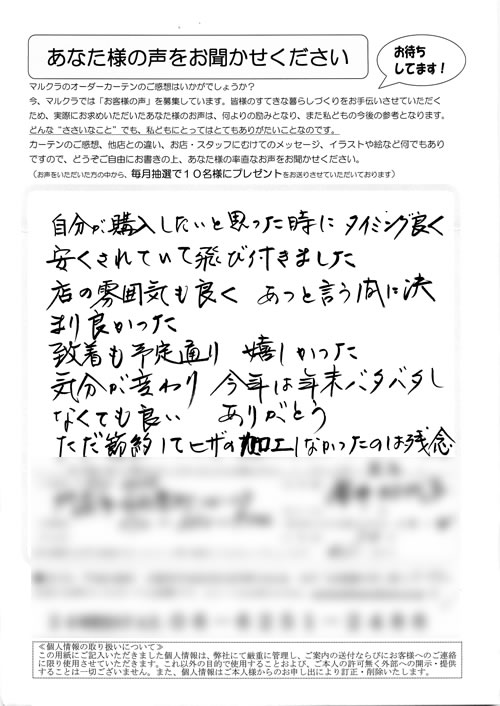 あなた様の声をお聞かせください
お待ち
してます!
マルクラのオーダーカーテンのご感想はいかがでしょうか?
今、マルクラでは「お客様の声」を募集しています。皆様のすてきな暮らしづくりをお手伝いさせていただく
ため、実際にお求めいただいたあなた様のお声は、何よりの励みとなり、また私どもの今後の参考となります。
どんな“ささいなこと”でも、私どもにとってはとてもありがたいことなのです。
カーテンのご感想、他店との違い、お店・スタッフにむけてのメッセージ、イラストや絵など何でもあり
ですので、どうぞご自由にお書きの上、あなた様の率直なお声をお聞かせください。
(お声をいただいた方の中から、毎月抽選で10名様にプレゼントをお送りさせていただいております)
自分が購入したいと思った時に タイミング良く
安くされていて飛び付きました
店の雰囲気も良く あっと言う間に決
まり良かった
到着も予定通り 嬉しかった
気分が変わり 今年は年末バタバタし
なくても良い ありがとう
ただ節約してヒザの加工しなかったのは残念
≪個人情報の取り扱いについて≫
この用紙にご記入いただきました個人情報は、弊社にて厳重に管理し、ご案内の送付ならびにお客様へのご連絡
に限り使用させていただきます。これ以外の目的で使用することおよび、ご本人の許可無く外部への開示・提供
することは一切ございません。また、個人情報はご本人様からのお申し出により訂正・削除いたします。